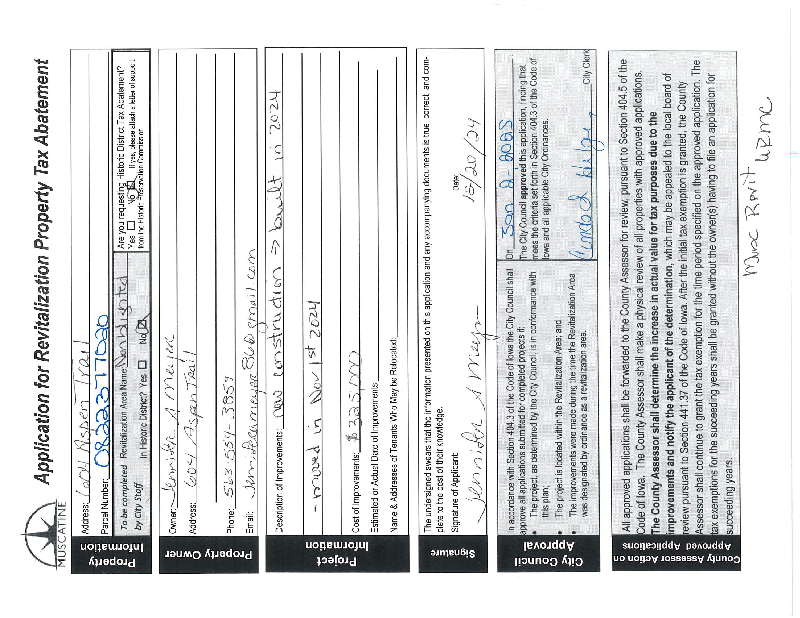 MUSCATINE
Application for Revitalization Property Tax Abatement
Property Information
Address: 604 Aspen Trail
Parcel Number: 0822377020
To be completed by City Staff
Revitalization Area Name: Nonblighted
In Historic District? Yes ☐ No ☒
Are you requesting Historic District Tax Abatement?
Yes ☐ No ☒ If yes, please attach a letter of support
from the Historic Preservation Commission.
Property Owner
Owner: Jennifer A Meyer
Address: 604 Aspen Trail
Phone: 563 554-3859
Email:
Project Information
Description of Improvements: new construction → built in 2024
- moved in Nov 1st 2024
Cost of Improvements: $325,000
Estimated or Actual Date of Improvements:
Name & Addresses of Tenants Who May be Relocated:
Signature
The undersigned swears that the information presented on this application and any accompanying documents is true, correct, and com-
plete to the best of their knowledge.
Signature of Applicant:
Jennifer A Meyer
Date:
12/20/24
City Council Approval
In accordance with Section 404.3 of the Code of Iowa the City Council shall
approve all applications submitted for completed projects if:
• The project, as determined by the City Council is in conformance with
this plan;
• The project is located within the Revitalization Area; and
• The improvements were made during the time the Revitalization Area
was designated by ordinance as a revitalization area.
On Jan 2, 2025
The City Council approved this application, finding that
meets the criteria set form in Section 404.3 of the Code of
Iowa and all applicable City Ordinances.
, City Clerk
County Assessor Action on Approved Applications
All approved applications shall be forwarded to the County Assessor for review, pursuant to Section 404.5 of the
Code of Iowa. The County Assessor shall make a physical review of all properties with approved applications.
The County Assessor shall determine the increase in actual value for tax purposes due to the
improvements and notify the applicant of the determination, which may be appealed to the local board of
review pursuant to Section 441.37 of the Code of Iowa. After the initial tax exemption is granted, the County
Assessor shall continue to grant the tax exemption for the time period specified on the approved application. The
tax exemptions for the succeeding years shall be granted without the owner(s) having to file an application for
succeeding years.
Musc Revit URMC